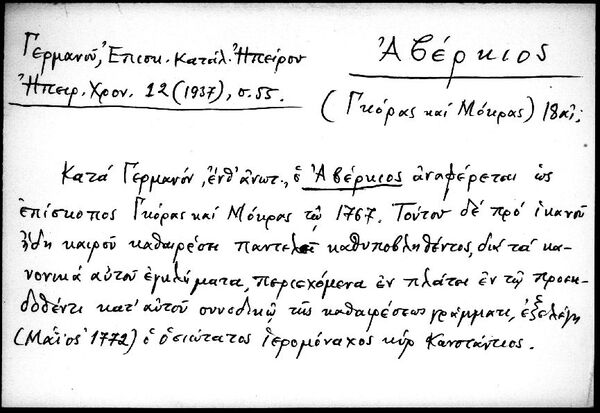 Γερμανοῦ, Ἐπισκ. Κατάλ. Ἠπείρου
Ἠπειρ. Χρον. 12 (1937), σ. 55.
Ἀβέρκιος
(Γκόρας καί Μόκρας) 18αἰ;
Κατά Γερμανόν, ἐνθ' ἀνωτ., ὁ Ἀβέρκιος ἀναφέρεται ὡς
ἐπίσκοπος Γκόρας καί Μόκρας τῷ 1767. Τούτου δέ πρό ἱκανοῦ
ἤδη καιροῦ καθαιρέσει παντελεῖ καθυποβληθέντος, διά τά κα-
νονικά αὐτοῦ ἐγκλήματα, περιεχόμενα ἐν πλάτει ἐν τῷ προεκ-
δοθέντι κατ' αὐτοῦ συνοδικῷ τῆς καθαιρέσεως γράμματι, ἐξελέγη
(Μάϊος 1772) ὁ ὁσιώτατος ἱερομόναχος κύρ Κωνστάντιος.